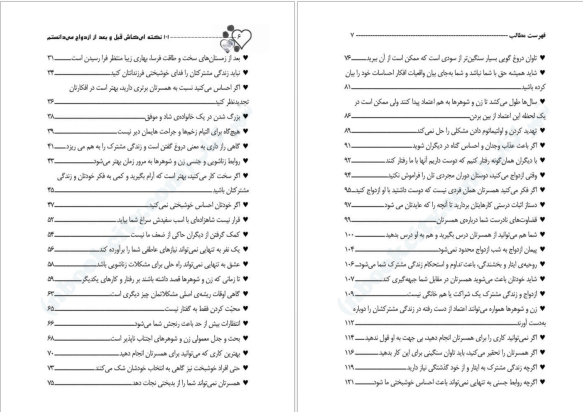 ۶ ۱۰۱ نکته ای‌کاش قبل و بعد از ازدواج می‌دانستم
♥ بعد از زمستان‌های سخت و طاقت فرسا، بهاری زیبا منتظر فرا رسیدن است....۳۱
♥ نباید زندگی مشترکتان را فدای خوشبختی فرزندانتان کنید....۳۳
♥ اگر احساس می‌کنید نسبت به همسرتان برتری دارید، بهتر است در افکارتان
تجدیدنظر کنید....۳۶
♥ بزرگ شدن در یک خانواده‌ی شاد و موفق....۳۸
♥ هیچ‌گاه برای التیام زخم‌ها و جراحت هایمان دیر نیست....۳۹
♥ گاهی راز داری به معنی دروغ گفتن است و زندگی مشترک را به هم می ریزد....۴۱
♥ روابط زناشویی و جنسی زن و شوهرها به مرور زمان بهتر می‌شود....۴۳
♥ اگر سخت کار می‌کنید، بهتر است که آرام بگیرید و کمی به فکر خودتان و زندگی
مشترکتان باشید....۴۵
♥ اگر خودتان احساس خوشبختی نمی‌کنید....۴۷
♥ قرار نیست شاهزاده‌ای با اسب سفیدش سراغ شما بیاید....۵۲
♥ کمک گرفتن از دیگران حاکی از ضعف ما نیست....۵۴
♥ یک نفر به تنهایی نمی‌تواند نیازهای عاطفی شما را برآورده کند....۵۶
♥ عشق به تنهایی نمی‌تواند راه حلی برای مشکلات زناشویی باشد....۵۸
♥ تا زمانی که زن و شوهرها قصد داشته باشند بر رفتار و کارهای یکدیگر....۵۹
♥ گاهی اوقات ریشه‌ی اصلی مشکلاتمان چیز دیگری است....۶۳
♥ محبّت کردن فقط به گفتار نیست....۶۵
♥ انتظارات بیش از حد باعث رنجش شما می‌شود....۶۶
♥ بحث و جدل معمولی زن و شوهرهای اجتناب ناپذیر است....۶۸
♥ بهترین کاری که می‌توانید برای همسرتان انجام دهید....۷۰
♥ حتی افراد خوشبخت نیز گاهی به انتخاب خودشان شک می‌کنند....۷۳
♥ همسرتان نمی‌تواند شما را از بدبختی نجات دهد....۷۵
فهرست مطالب ۷
♥ تاوان دروغ گویی بسیار سنگین‌تر از سودی است که ممکن است از آن ببرید....۷۶
♥ شاید همیشه حق با شما نباشد و شما به‌جای بیان واقعیات افکار احساسات خود را بیان
کرده باشید....۸۱
♥ سال‌ها طول می‌کشد تا زن و شوهرها به هم اعتماد پیدا کنند ولی ممکن است در
یک لحظه این اعتماد از بین برد....۸۶
♥ تهدید کردن و اولتیماتوم دادن مشکلی را حل نمی‌کند....۸۹
♥ اگر باعث عذاب وجدان و احساس گناه در دیگران شوید....۹۱
♥ با دیگران همان‌گونه رفتار کنیم که دوست داریم آنها با ما رفتار کنند....۹۲
♥ وقتی ازدواج می‌کنید، دوستان دوران مجردی تان را فراموش نکنید....۹۴
♥ اگر فکر می‌کنید همسرتان همان فردی نیست که دوست داشتید با او ازدواج کنید....۹۵
♥ دستاز اثبات درستی کارهایتان بردارید تا آنچه را که عایدتان می شود....۹۷
♥ قضاوت‌های نادرست شما درباره‌ی همسرتان....۹۹
♥ شما هم می‌توانید از همسرتان درس بگیرید و هم به او درس بدهید....۱۰۰
♥ پیمان ازدواج به شب ازدواج محدود نمی‌شود....۱۰۴
♥ روحیه‌ی ایثار و بخشندگی، باعث تداوم و استحکام زندگی مشترک شما می‌شود....۱۰۶
♥ شاید خودتان باعث می‌شوید همسرتان در مقابل شما جبهه‌گیری کند....۱۰۷
♥ ازدواج و زندگی مشترک یک شراکت یا هم خانگی نیست....۱۰۹
♥ زن و شوهرها همواره می‌توانند اعتماد از دست رفته در زندگی مشترکشان را دوباره
به‌دست آورند....۱۱۲
♥ اگر نمی‌توانید کاری را برای همسرتان انجام دهید، بی جهت به او قول ندهید....۱۱۴
♥ اگر همسرتان را تحقیر می‌کنید، باید تاوان سنگینی برای این کار بدهید....۱۱۶
♥ اگرچه زندگی مشترک به ایثار و از خود گذشتگی نیاز دارید....۱۱۹
♥ اگرچه روابط جنسی به تنهایی نمی‌تواند باعث احساس خوشبختی ما شود....۱۲۱